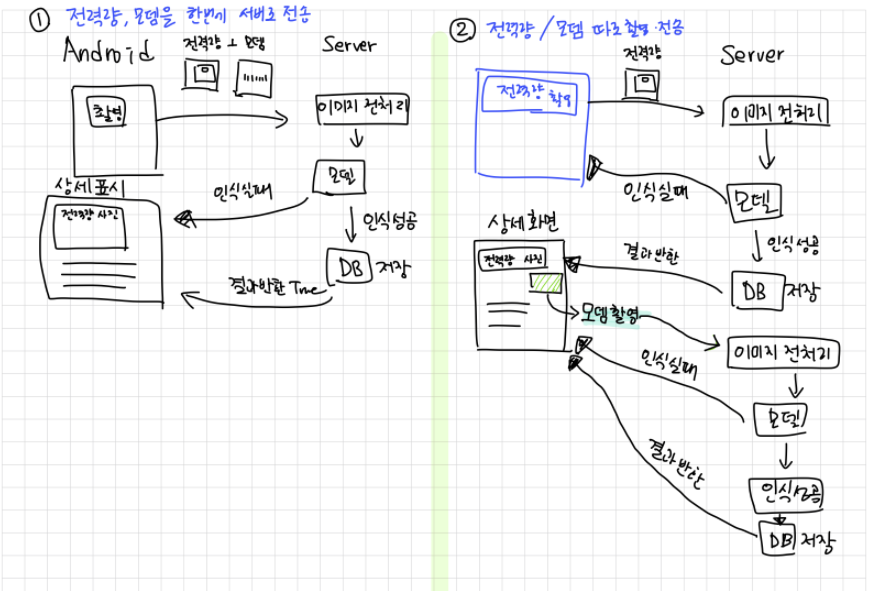 ① 전력량, 모뎀을 한번에 서버로 전송
Android
전력량 + 모뎀
Server
촬영
이미지 전처리
모델
인식실패
인식성공
상세표시
전력량 사진
DB 저장
결과반환 True
② 전력량 / 모뎀 따로 촬영·전송
전력량
Server
전력량 촬영
이미지 전처리
인식실패
모델
인식성공
상세화면
결과반환
전력량 사진
DB 저장
모뎀촬영
이미지 전처리
인식실패
모델
결과반환
인식성공
DB 저장